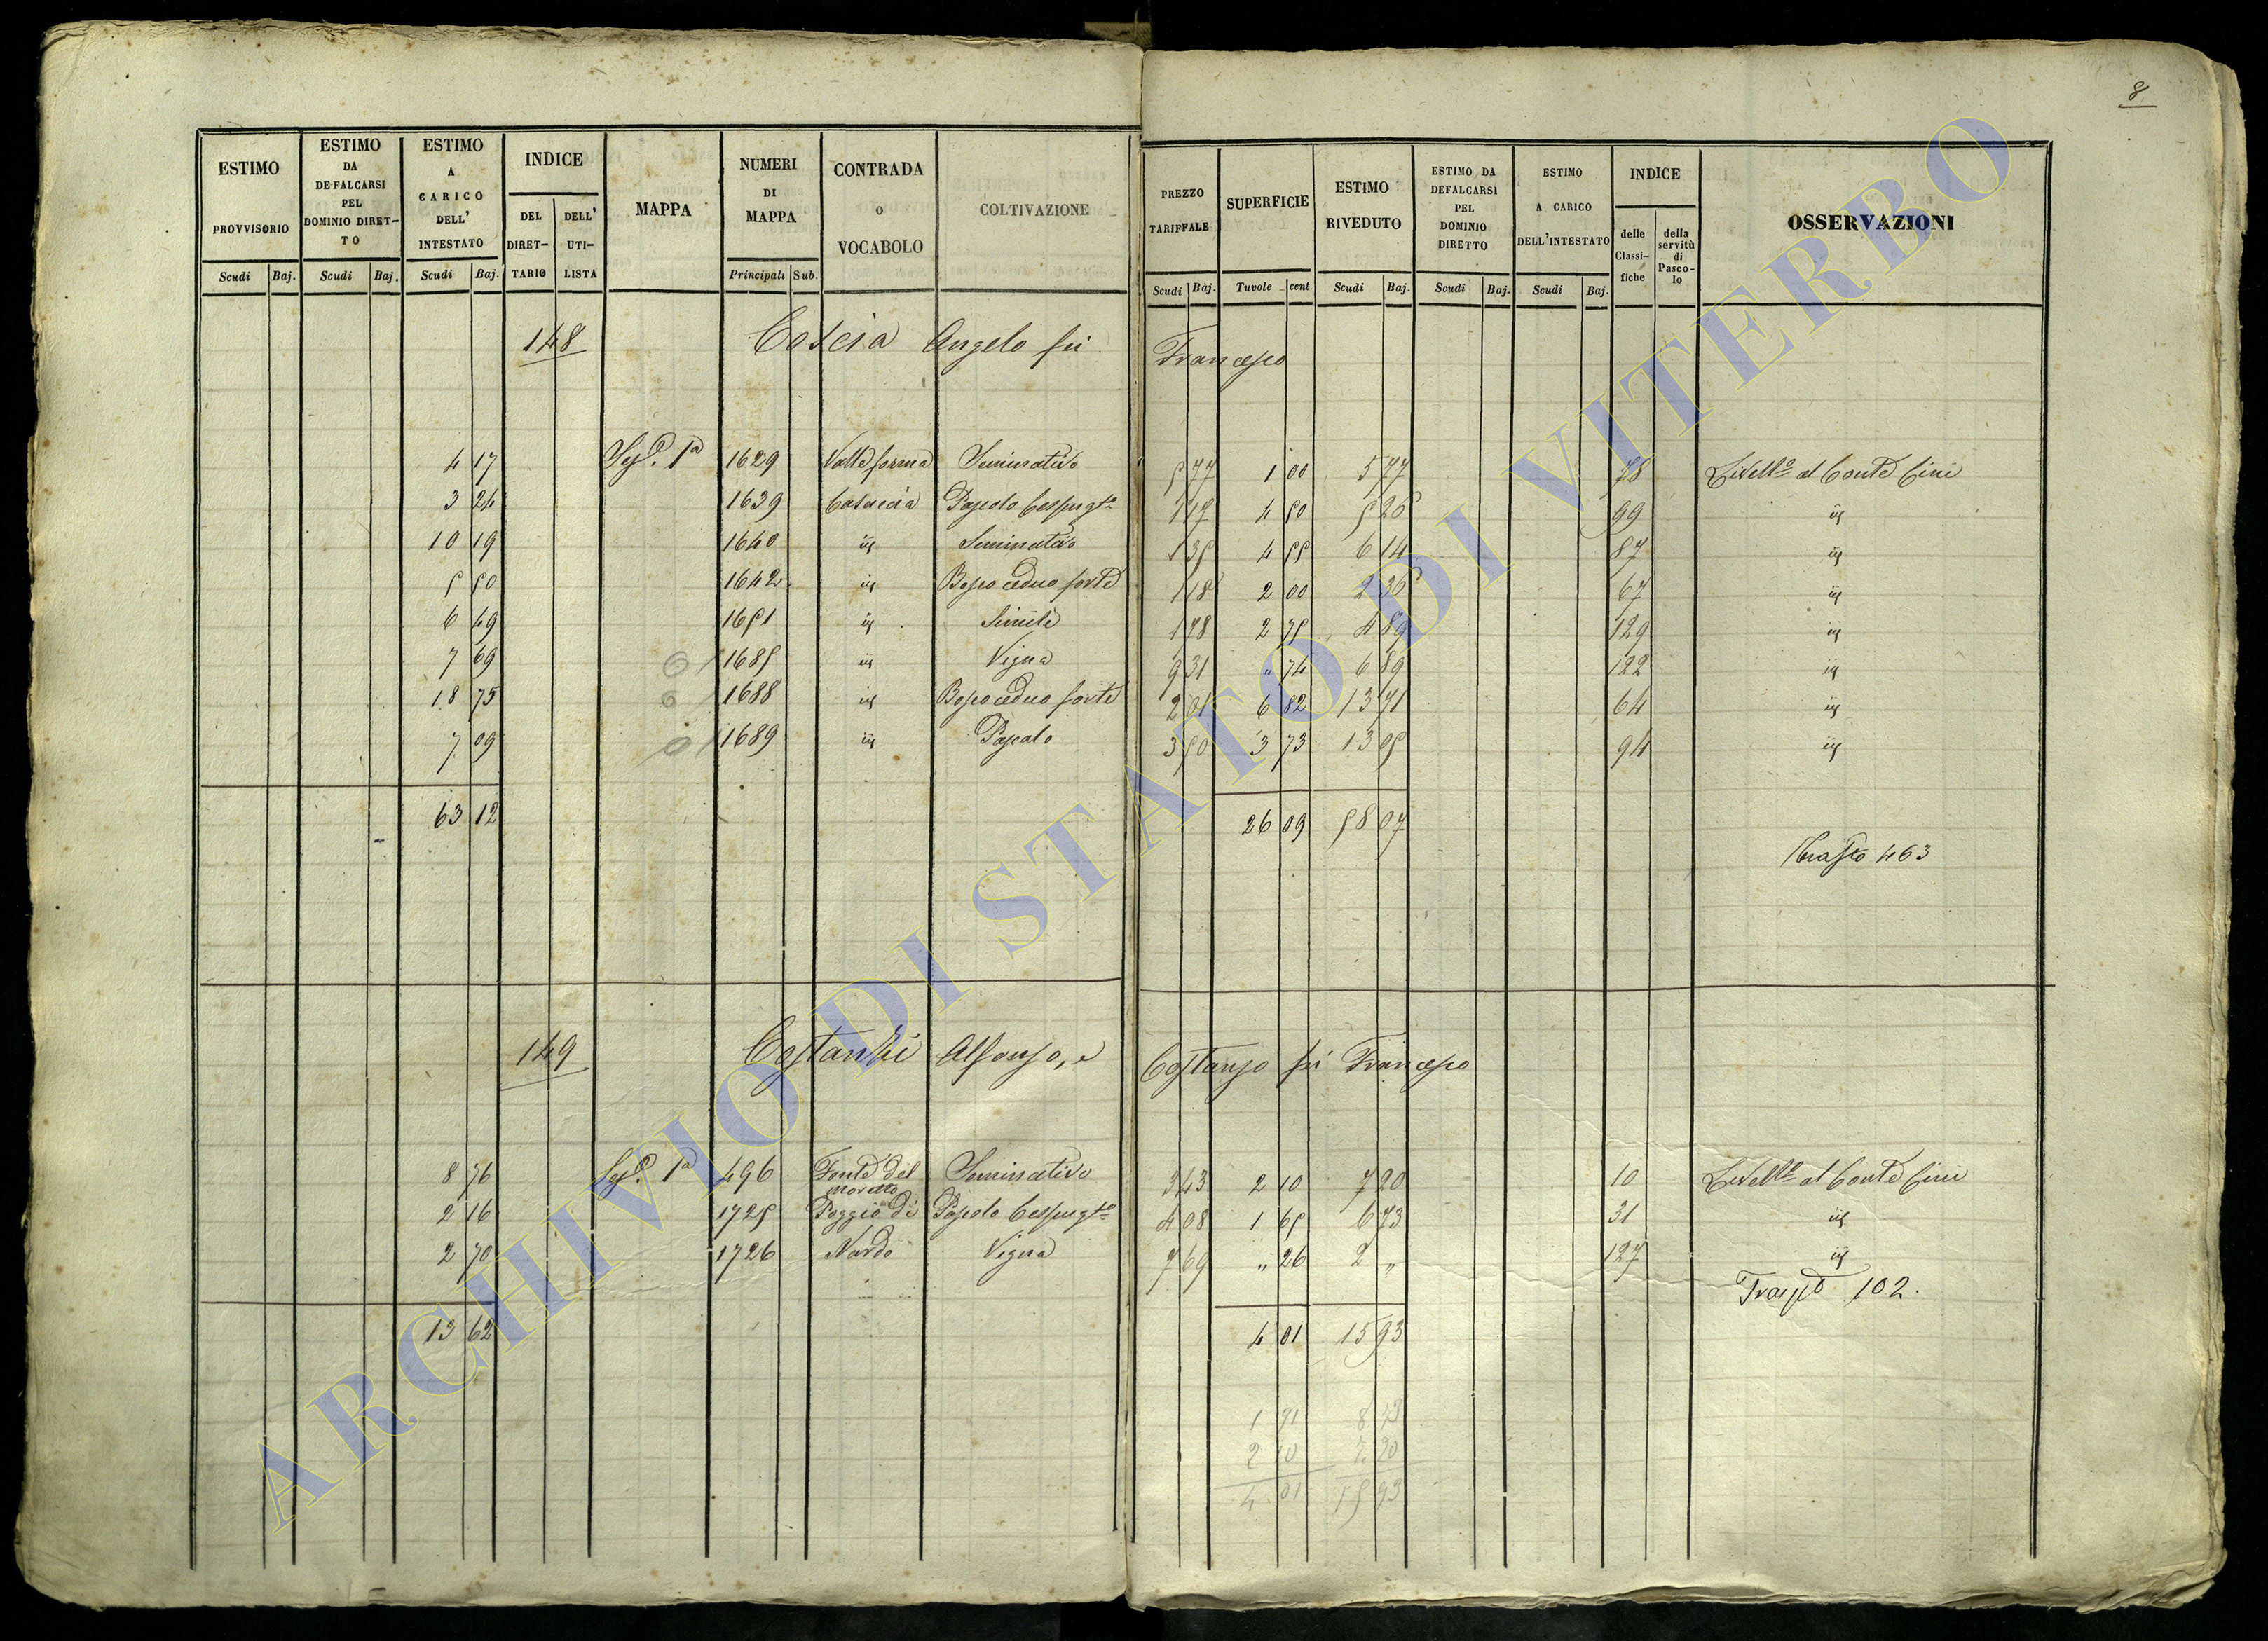 8
ESTIMO PROVVISORIO
Scudi Baj.
ESTIMO DA DEFALCARSI PEL DOMINIO DIRET-TO
Scudi Baj.
ESTIMO A CARICO DELL' INTESTATO
Scudi Baj.
INDICE
DEL DIRET-TARIO
DELL' UTI-LISTA
MAPPA
NUMERI DI MAPPA
Principali Sub.
CONTRADA o VOCABOLO
COLTIVAZIONE
PREZZO TARIFFALE
Scudi Baj.
SUPERFICIE
Tavole cent
ESTIMO RIVEDUTO
Scudi Baj.
ESTIMO DA DEFALCARSI PEL DOMINIO DIRETTO
Scudi Baj.
ESTIMO A CARICO DELL'INTESTATO
Scudi Baj.
INDICE
delle Classi-fiche
della servitù di Pasco-lo
OSSERVAZIONI
148 Coscia Angelo fu Francesco
4 17 Sez. 1a 1629 Valle forma Seminativo 5 77 1 00 5 77 78 Livello al Conte Cini
3 24 1639 Casaccia Pascolo Cespugto 1 17 4 50 5 26 99 id
10 19 1640 id Seminativo 1 35 4 55 6 14 87 id
5 50 1642 id Bosco ceduo forte 1 18 2 00 2 36 67 id
6 49 1651 id Simile 1 78 2 75 4 89 129 id
7 69 1685 id Vigna 9 31 " 74 6 89 122 id
18 75 1688 id Bosco ceduo forte 2 01 6 82 13 71 64 id
7 09 1689 id Pascolo 3 50 3 73 13 05 94 id
63 12 26 09 58 07
463
149 Costanzi Alfonso, e Costanzo fu Francesco
8 76 Sez. 1a 496 Fonte del Moretto Seminativo 3 43 2 10 7 20 10 Livello al Conte Cini
2 16 1725 Poggio di Pascolo Cespugto 4 08 1 65 6 73 31 id
2 70 1726 Nardo Vigna 7 69 " 26 2 " 127 id
102.
13 62 4 01 15 93
1 91 8 73
2 10 7 20
4 01 15 93
ARCHIVIO DI STATO DI VITERBO